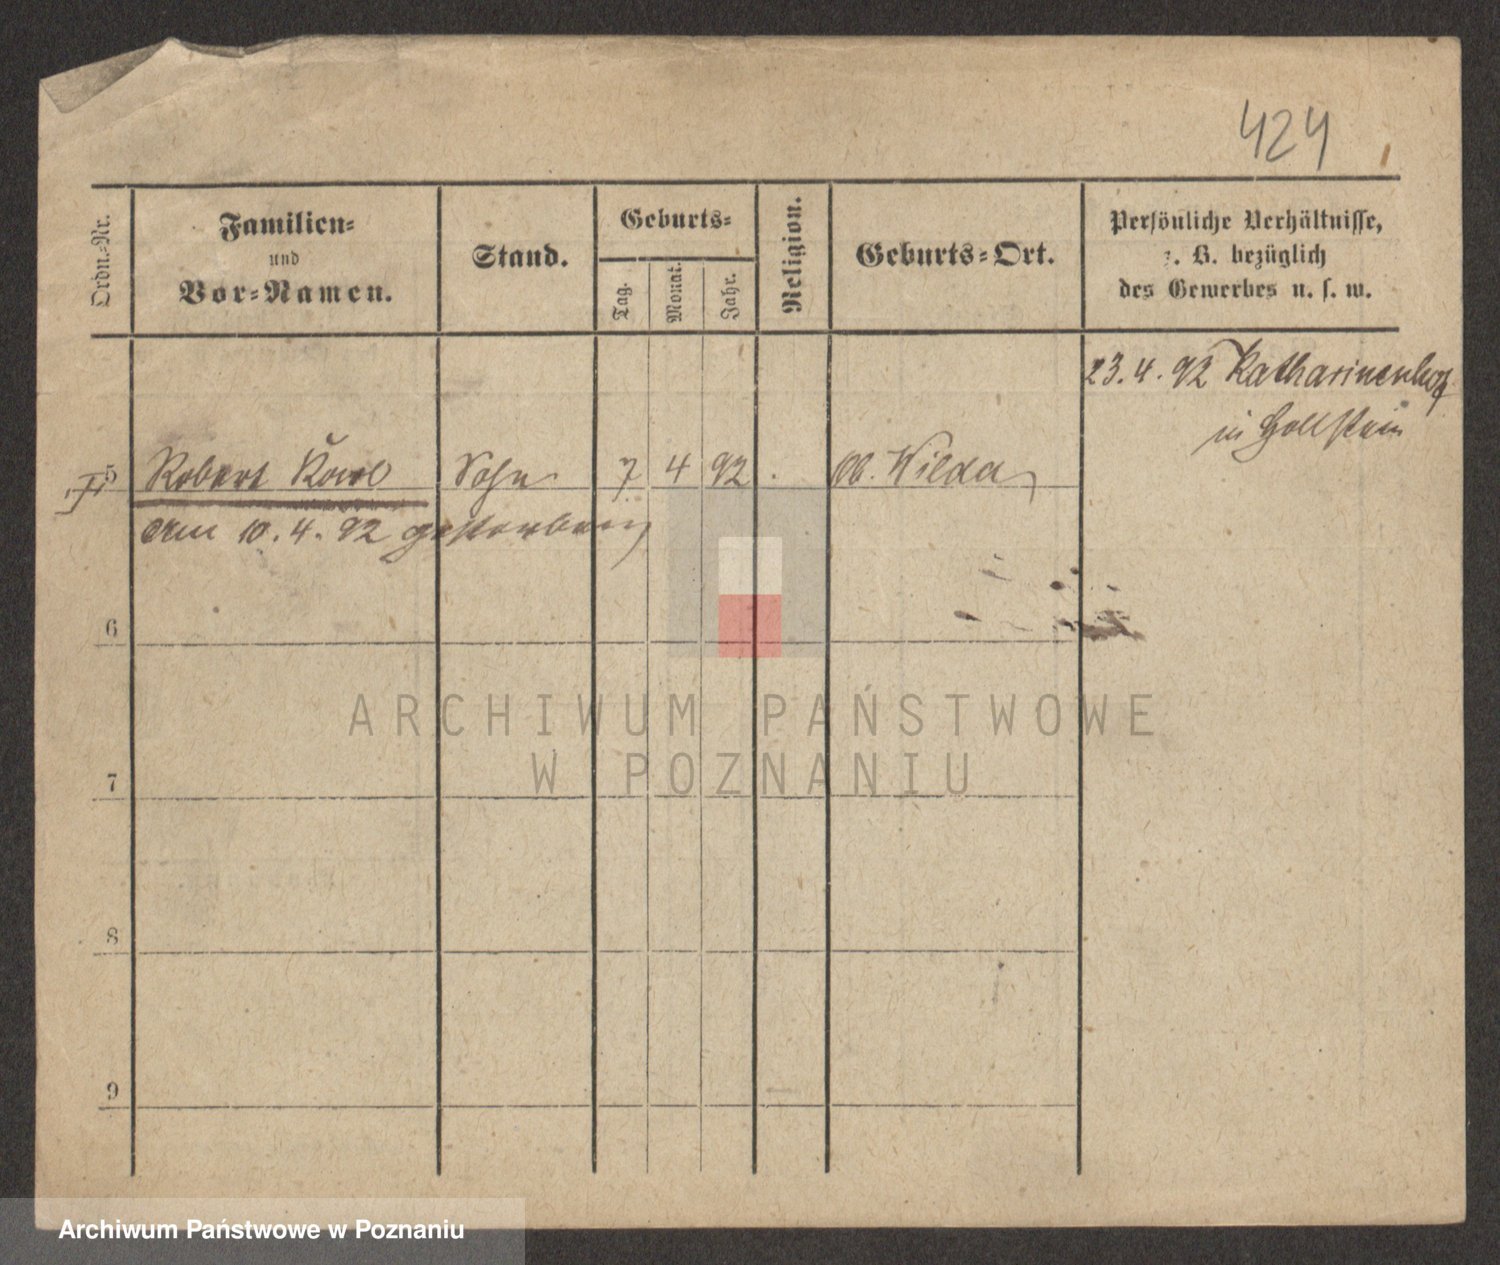 424
Ordn.-Nr.
Familien-
und
Vor-Namen.
Stand.
Geburts-
Tag.
Monat.
Jahr.
Religion.
Geburts-Ort.
Persönliche Verhältnisse,
z. B. bezüglich
des Gewerbes u. s. w.
23.4.92 Katharinenhof
in Hollstein
5 Robert Karl Sohn 7 4 92 . Wilda
am 10.4.92 gestorben
6
7
8
9
ARCHIWUM PAŃSTWOWE
W POZNANIU
Archiwum Państwowe w Poznaniu